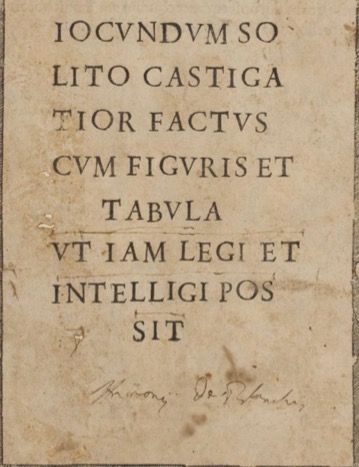 IOCVNDVM SO
LITO CASTIGA
TIOR FACTVS
CVM FIGVRIS ET
TABVLA
VT IAM LEGI ET
INTELLIGI POS
SIT
De